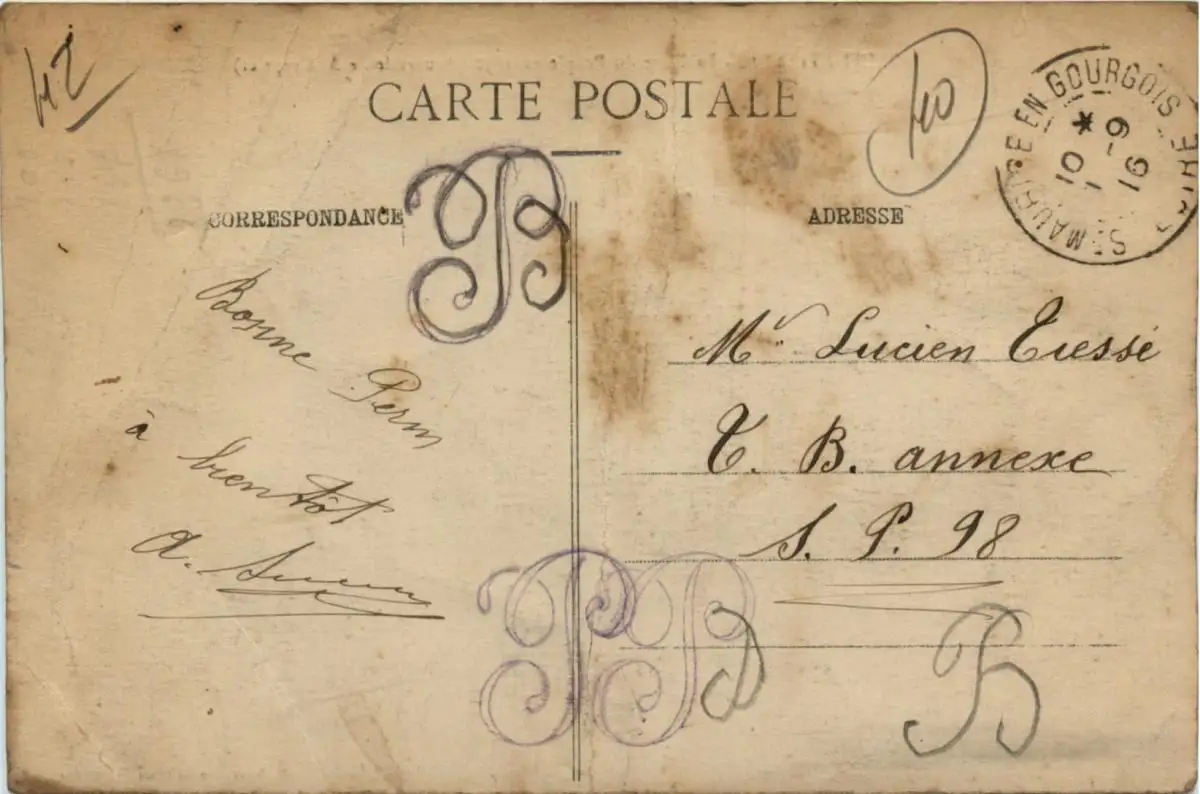 42
CARTE POSTALE
40
ST MAURICE EN GOURGOIS
10 *
1 -9
16
CORRESPONDANCE
ADRESSE
Bonne Perm
à bientôt
A.
Mr Lucien Tiessé
T. B. annexe
S. P. 98
B
B B
B